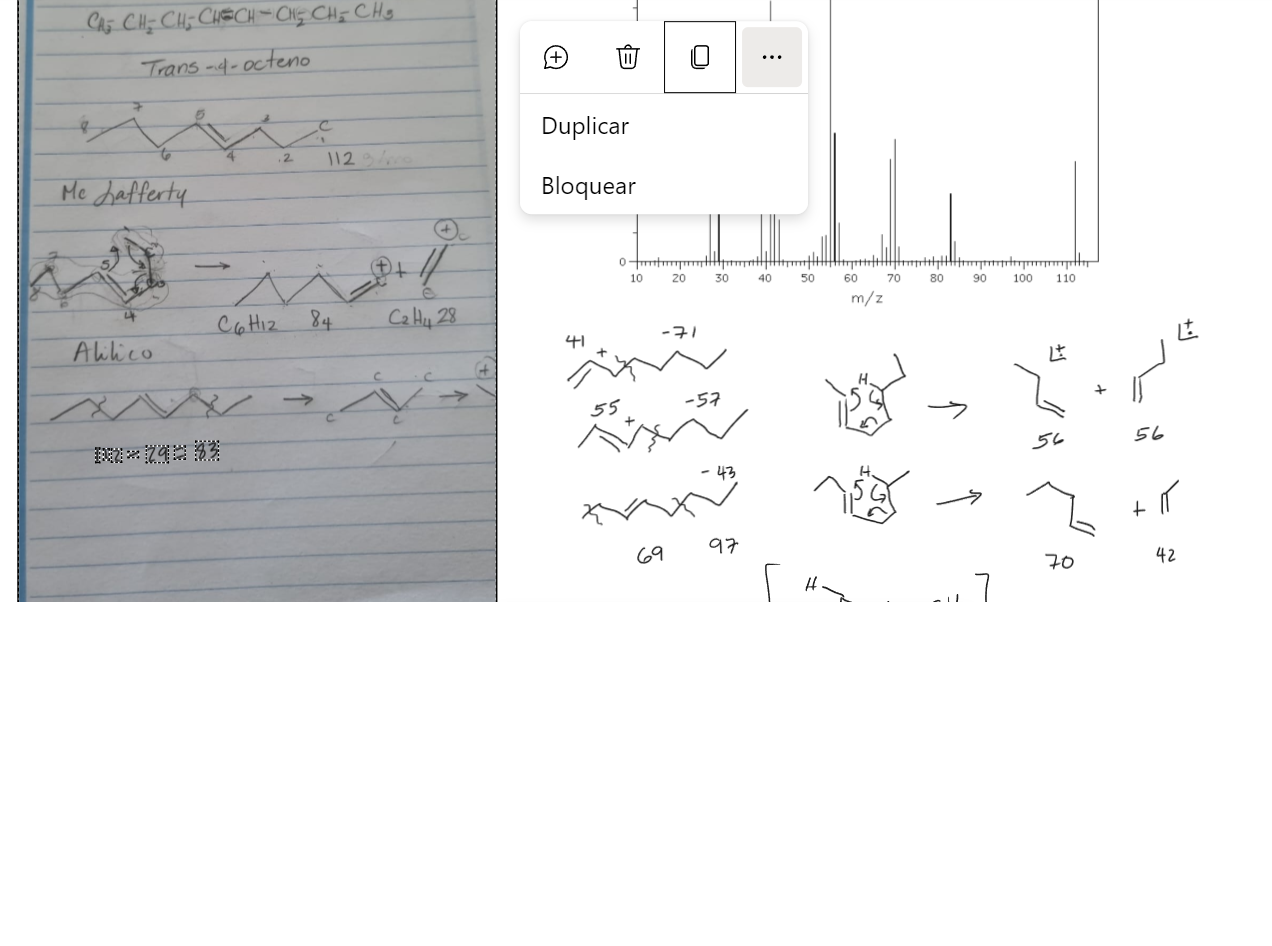 CH3- CH2- CH2- CH=CH - CH2- CH2- CH3
Trans-4-octeno
8 7 6 5 4 2 C
112
Mc Lafferty
7 8 6 5 4
C6H12 84 C2H4 28
+
Alilico
C C C C
112 - 29 = 83
Duplicar
Bloquear
0
10 20 30 40 50 60 70 80 90 100 110
m/z
41 + -71
55 + -57
-43
69 97
H
56 + 56
H
70 + 42
H